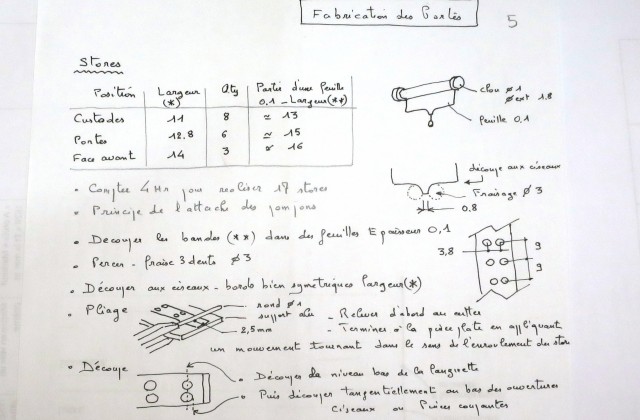 Fabrication des Portes
5
Stores
Position Largeur (*) Qty Partie d'une feuille 0,1 - Largeur (**)
Custodes 11 8 ≃ 13
Portes 12,8 6 ≃ 15
Face avant 14 3 ≃ 16
clou ø 1
ø ext 1,8
feuille 0,1
• Compter 4 Hr pour realiser 17 stores
• Principe de l'attache des pompons
découpe aux ciseaux
Fraisage ø 3
0.8
• Decouper les bandes (**) dans des feuilles Epaisseur 0,1
• Percer - fraise 3 dents ø3
3,8
9
9
• Découper aux ciseaux - bords bien symetriques largeur (*)
• Pliage
rond ø 1
support alu
2,5mm
- Relever d'abord au
- Terminer à la pièce plate en appliquant
un mouvement tournant dans le sens de l'enroulement du store
• Découpe
• Découper de niveau bas de la languette
• Puis découper tangentiellement au bas des ouvertures
Ciseaux ou Pinces coupantes